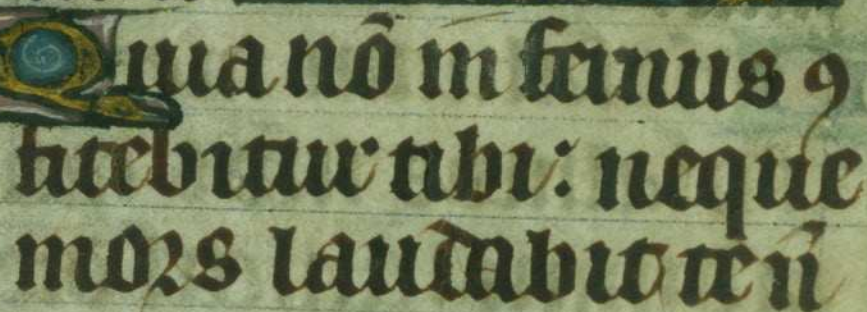 Quia nō in fernus ꝯ
fitebitur tibi: neque
mors laudabit te n̄